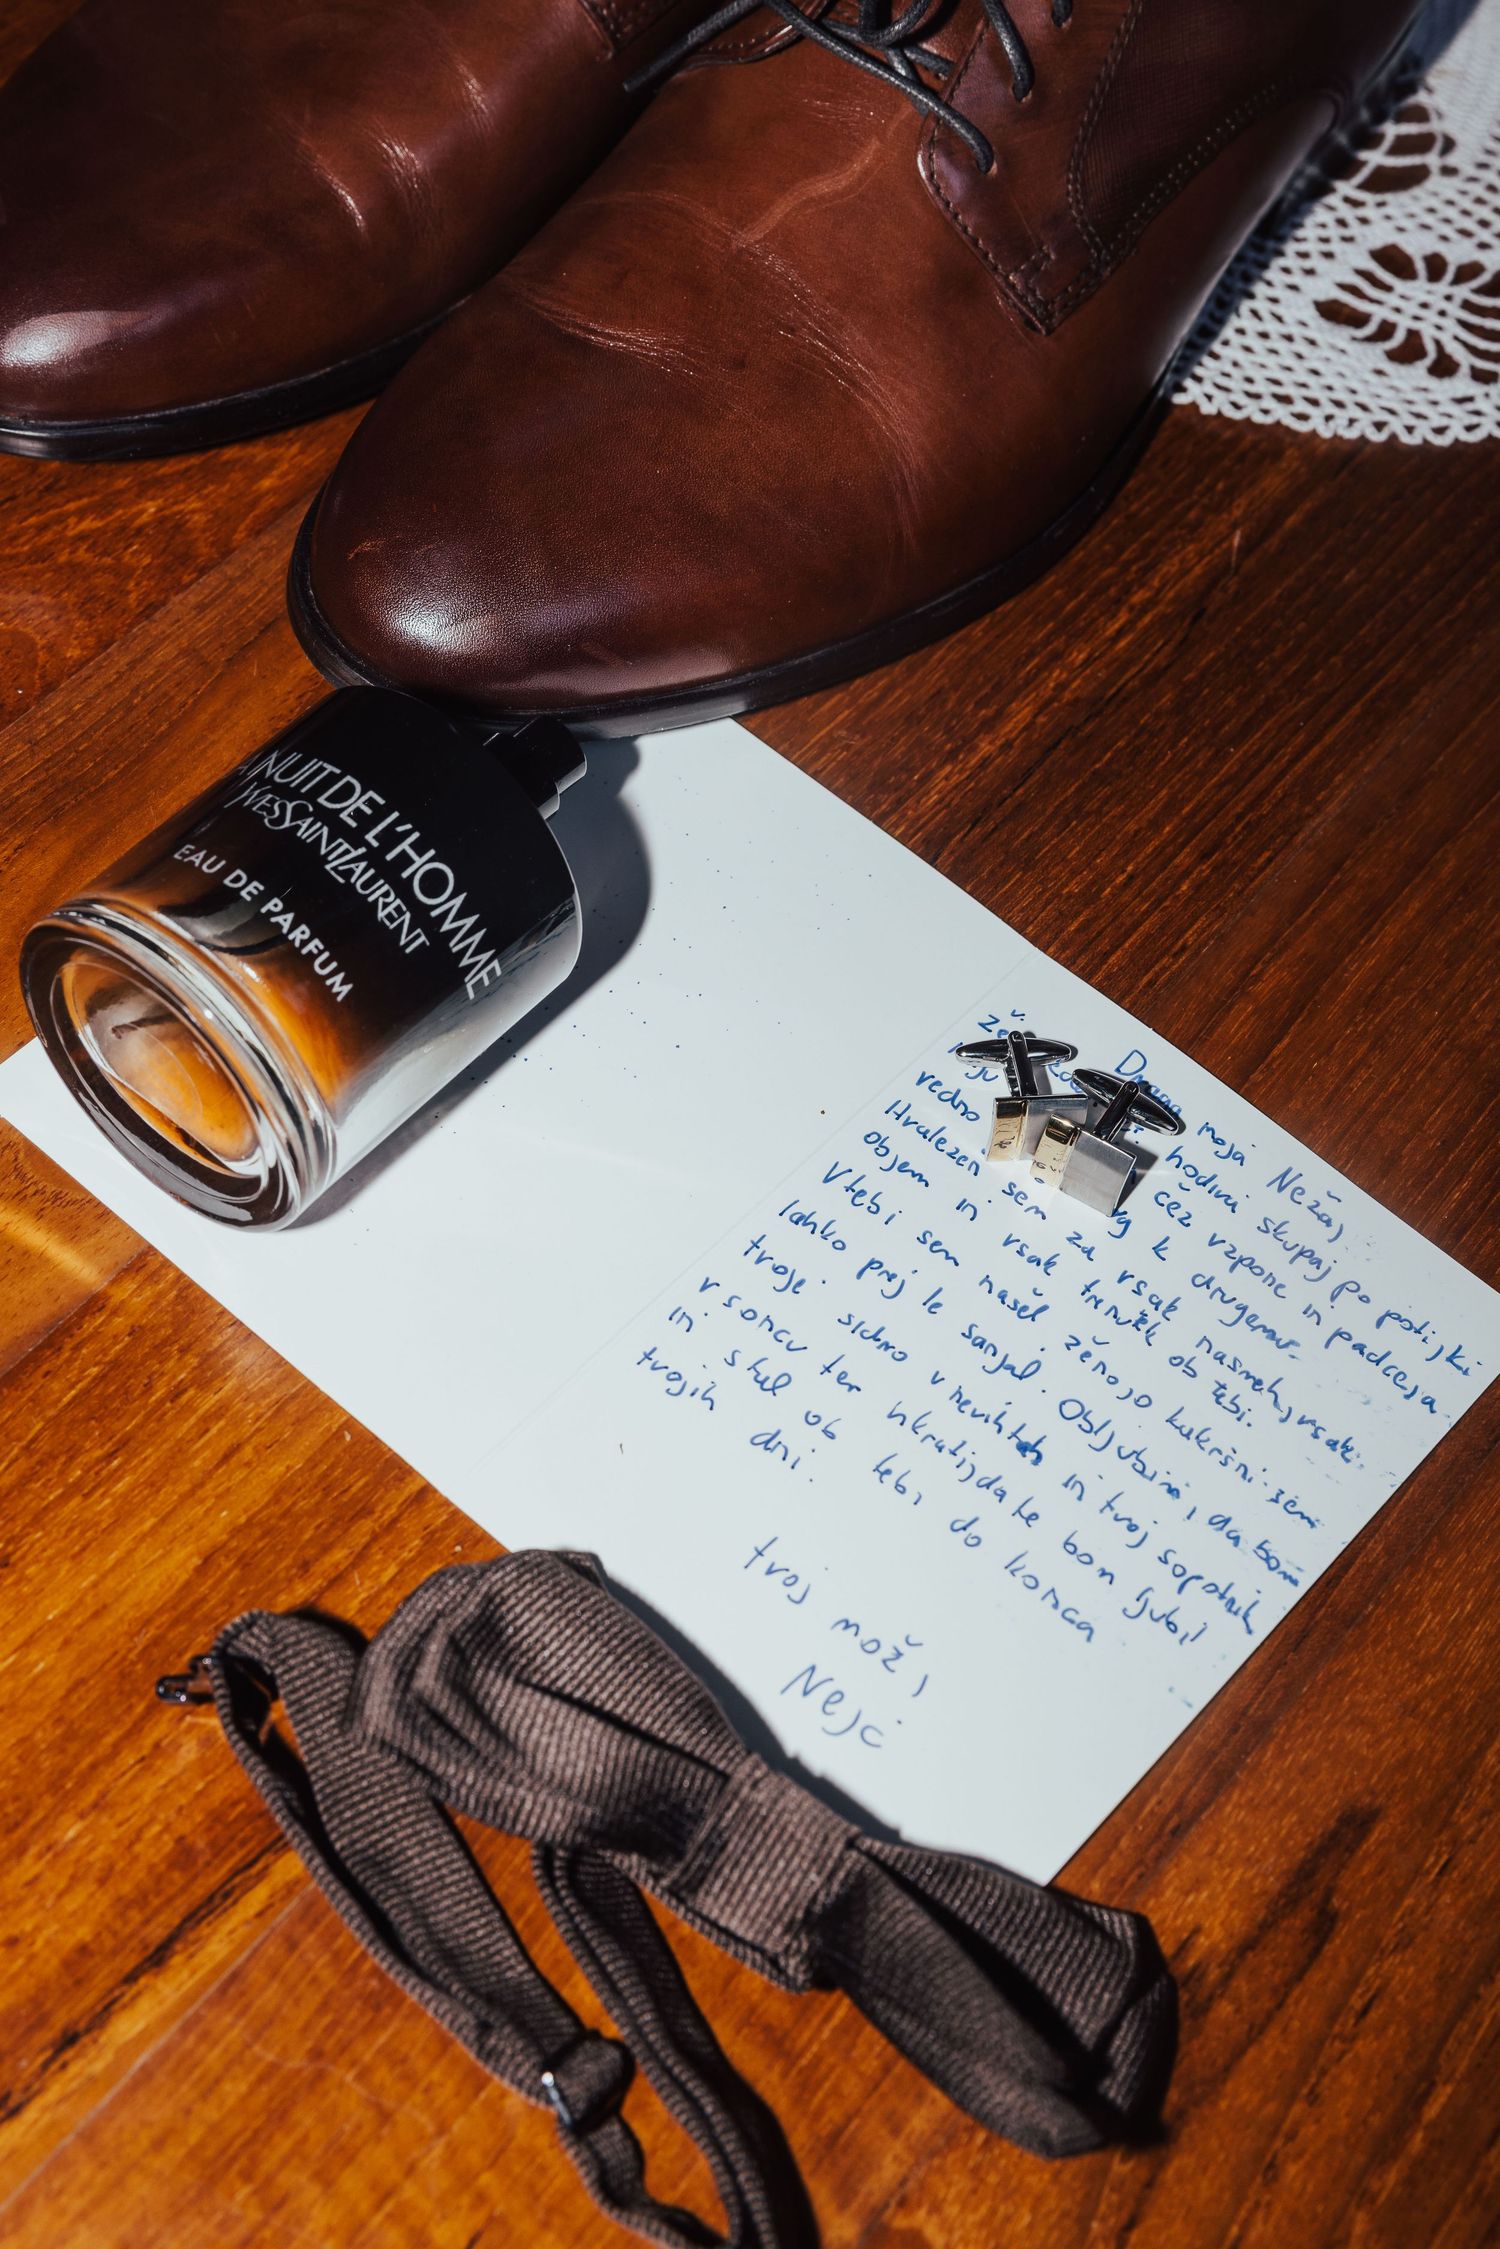 LA NUIT DE L'HOMME
YVESSAINTLAURENT
EAU DE PARFUM
Draga moja Neža,
že hodiva skupaj po poti, ki
naju vedno čez vzpone in padce, a
vedno k drugemu.
Hvaležen sem za vsak nasmeh, vsak
objem in vsak trenutek ob tebi.
V tebi sem našel ženo, o kakršni sem
lahko prej le sanjal. Obljubim, da bom
tvoje sidro v nevihtah in tvoj sopotnik
v soncu ter hkrati, da te bom ljubil
in stal ob tebi do konca
svojih dni.
tvoj mož,
Nejc